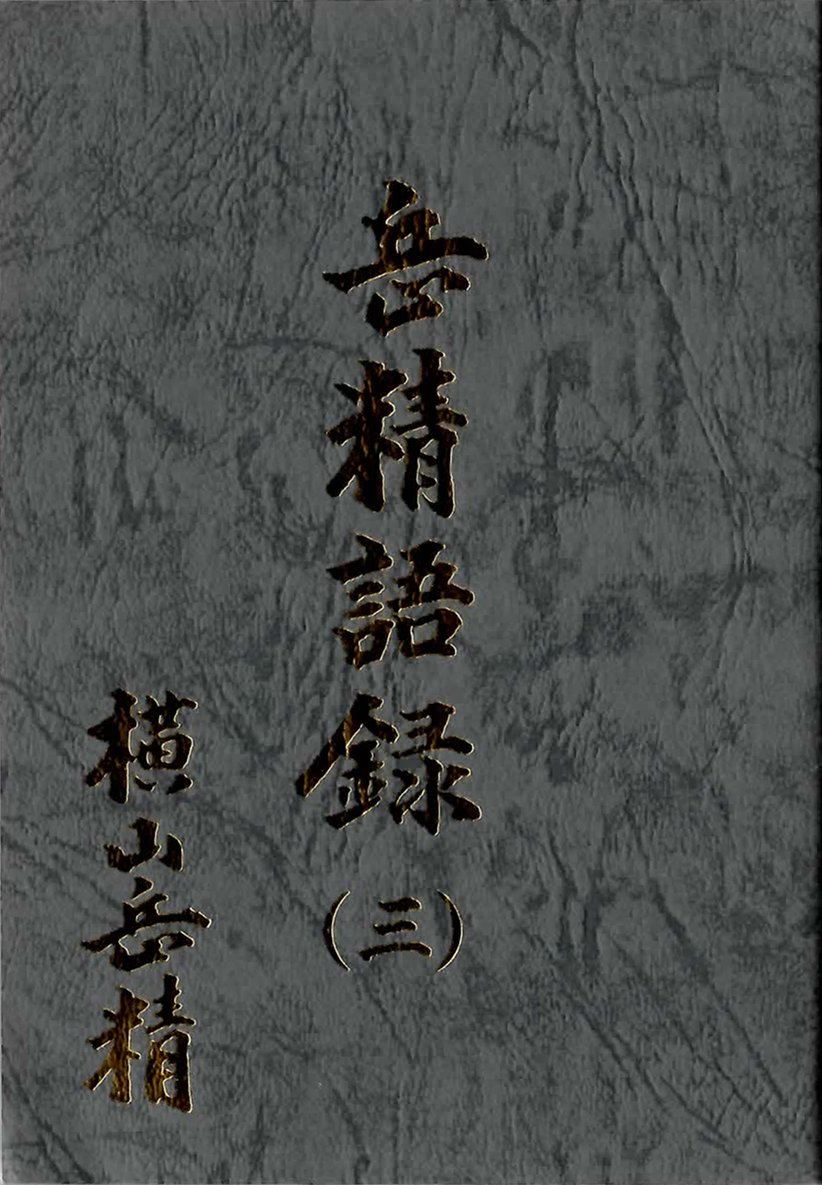 岳精語録(三)
横山岳精